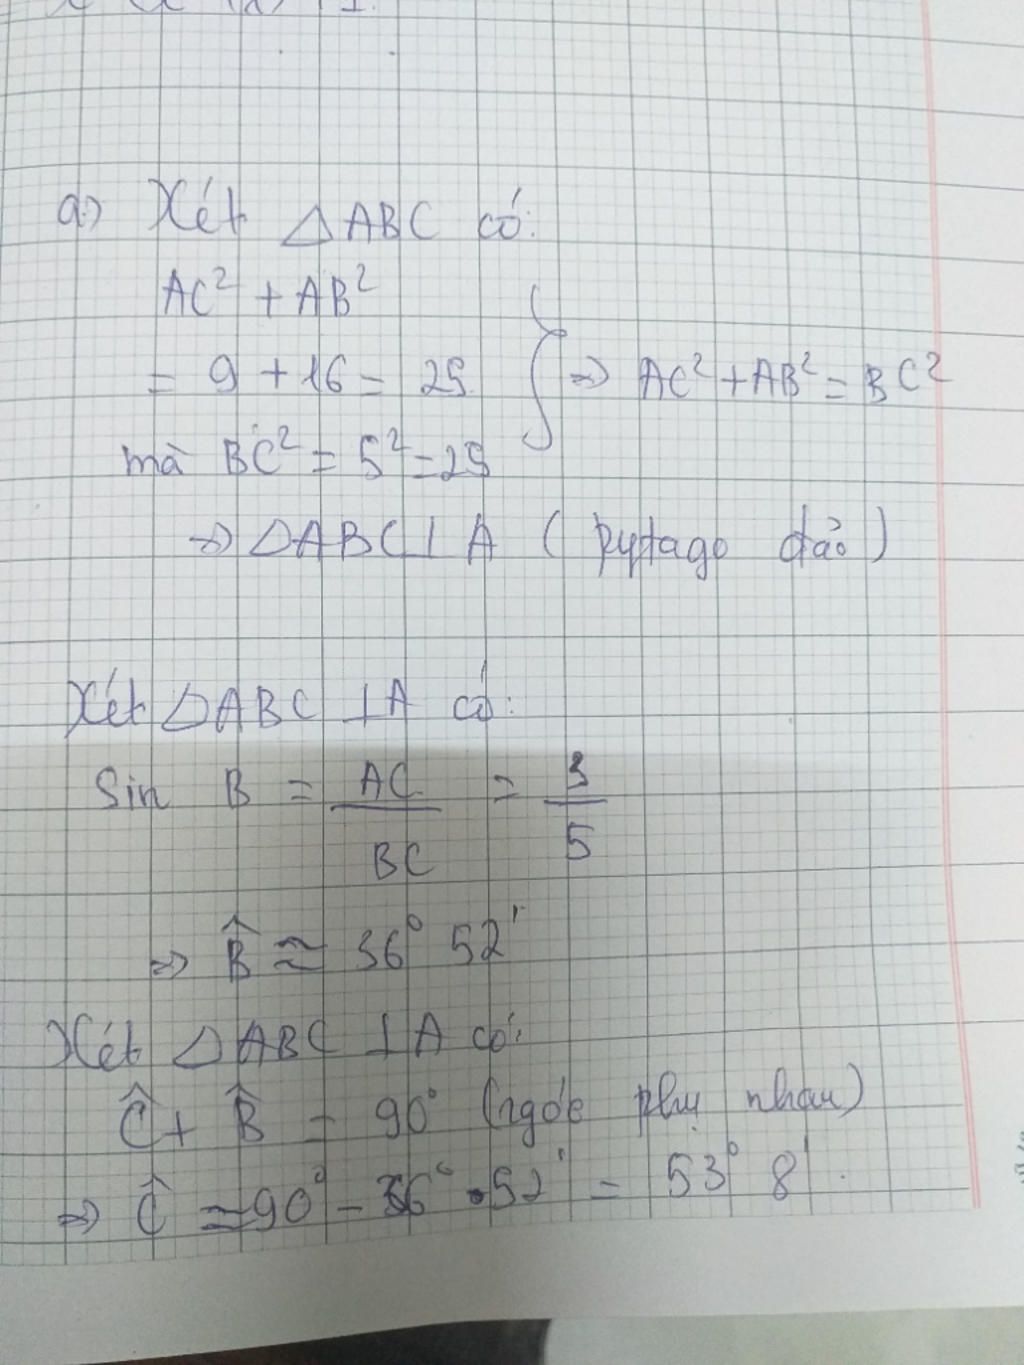 a) Xét △ABC có:
AC² + AB²
= 9 + 16 = 25 } => AC² + AB² = BC²
mà BC² = 5² = 25
=> △ABC ⊥ A ( Pytago đảo )
Xét △ABC ⊥ A có:
Sin B = AC/BC = 3/5
=> B̂ ≈ 36° 52'
Xét △ABC ⊥ A có:
Ĉ + B̂ = 90° (góc phụ nhau)
=> Ĉ ≈ 90° - 36° 52' = 53° 8'.